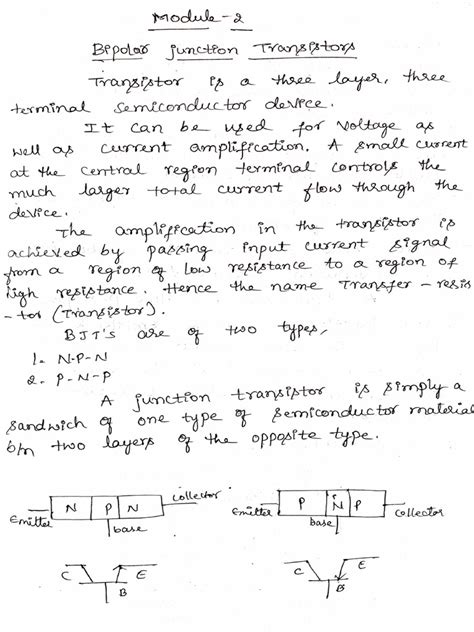 Module-2
Bipolar junction Transistors
Transistor is a three layer, three
terminal semiconductor device.
It can be used for voltage as
well as current amplification. A small current
at the central region terminal controls the
much larger total current flow through the
device.
The amplification in the transistor is
achieved by passing input current signal
from a region of low resistance to a region of
high resistance. Hence the name Transfer-resis
-tor (Transistor).
BJT's are of two types,
1. N-P-N
2. P-N-P
A junction transistor is simply a
sandwich of one type of semiconductor material
b/n two layers of the opposite type.
Emitter N P N collector
base
Emitter P N P collector
base
C E
B
C E
B